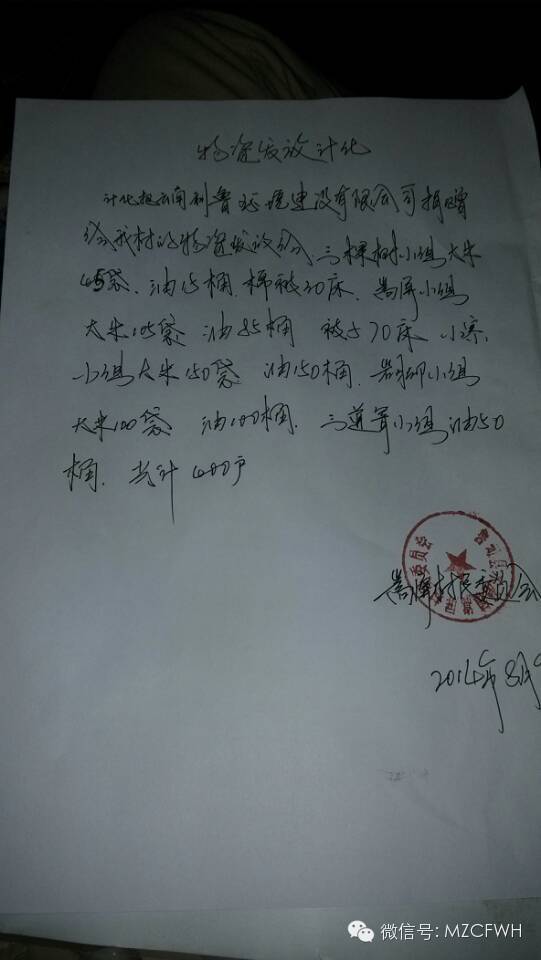 物资发放计化
计化把云南利鲁环境建设有限公司捐赠
给我村的物资发放给三棵树小组大米
45袋、油15桶、棉被30床、营屏小组
大米105袋 油85桶 被子70床、小寨
小组大米150袋 油150桶、小组
大米100袋 油100桶、三小组油50
桶、共计400户
村民委员会
2014年8月
委员会
微信号: MZCFWH